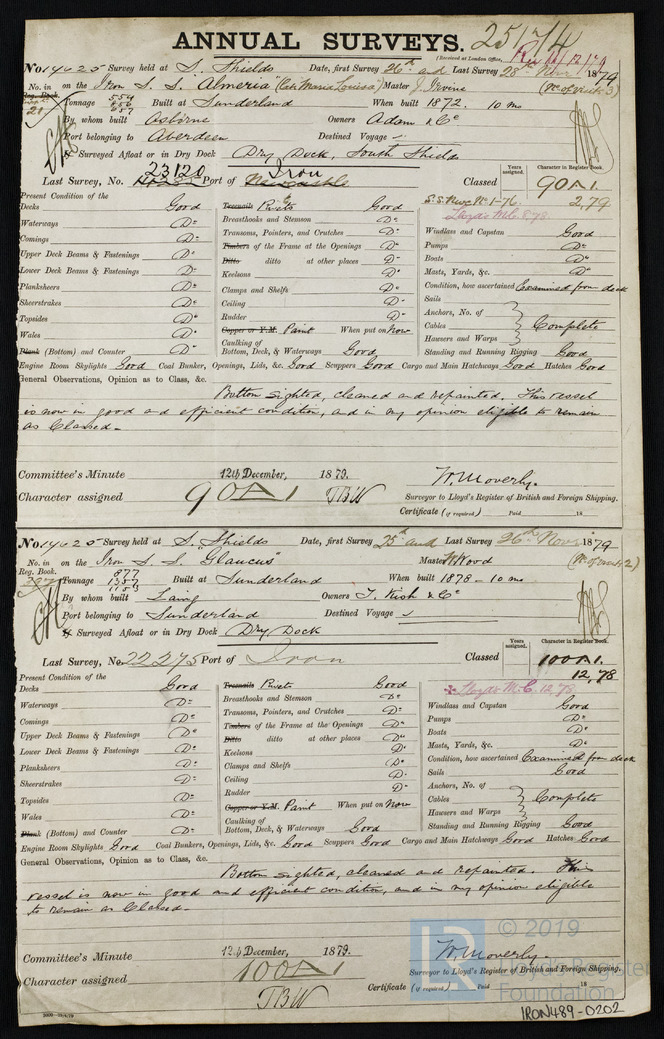 ANNUAL SURVEYS. 25174
(Received at London Office,
No. 14625 Survey held at S. Shields Date, first Survey 26th and Last Survey 28th Novr 1879
No. in on the Iron S.S. "Almeria" (late Maria Louisa) Master J. Irvine (No. of visits 3)
Reg. Book.
Tonnage Built at Sunderland When built 1872. 10 mo
By whom built Osborne Owners Adam & Co
Port belonging to Aberdeen Destined Voyage
If Surveyed Afloat or in Dry Dock Dry Dock, South Shields
Years assigned. Character in Register Book.
Last Survey, No. 23120 Port of Iron Newcastle Classed 90A1
2,79
S.S. Nwc. No. 1-76.
Lloyds M.C. 8,78
Present Condition of the
Decks Good Treenails Rivets Good
Waterways Do Breasthooks and Stemson Do Windlass and Capstan Good
Comings Do Transoms, Pointers, and Crutches Do Pumps Do
Upper Deck Beams & Fastenings Do Timbers of the Frame at the Openings Do Boats Do
Lower Deck Beams & Fastenings Do Ditto ditto at other places Do Masts, Yards, &c. Do
Planksheers Do Keelsons Do Condition, how ascertained Examined from deck
Sheerstrakes Do Clamps and Shelfs Do Sails
Topsides Do Ceiling Do Anchors, No. of
Wales Do Rudder Do Cables Complete
Copper or Y.M. Paint When put on Now Hawsers and Warps
Plank (Bottom) and Counter Do Caulking of Bottom, Deck, & Waterways Good Standing and Running Rigging Good
Engine Room Skylights Good Coal Bunker, Openings, Lids, &c. Good Scuppers Good Cargo and Main Hatchways Good Hatches Good
General Observations, Opinion as to Class, &c.
Bottom sighted, cleaned and repainted. This vessel
is now in good and efficient condition, and in my opinion eligible to remain
as Classed.-
Committee's Minute 12th December, 1879.
Character assigned 90A1 TBW W. Moverly.
Surveyor to Lloyd's Register of British and Foreign Shipping.
Certificate (if required) Paid 18
No. 14625 Survey held at S. Shields Date, first Survey 25th and Last Survey 26th Novr 1879
No. in on the Iron S.S. "Glaucus" Master W Wood (No. of visits 2)
Reg. Book.
Tonnage 877 1357 1153 Built at Sunderland When built 1878 - 10 mo
By whom built Laing Owners T. Kish & Co
Port belonging to Sunderland Destined Voyage
If Surveyed Afloat or in Dry Dock Dry Dock
Years assigned. Character in Register Book.
Last Survey, No. 22,275 Port of Iron Classed 100A1.
12,78
Lloyds M.C. 12,78
Present Condition of the
Decks Good Treenails Rivets Good
Waterways Do Breasthooks and Stemson Do Windlass and Capstan Good
Comings Do Transoms, Pointers, and Crutches Do Pumps Do
Upper Deck Beams & Fastenings Do Timbers of the Frame at the Openings Do Boats Do
Lower Deck Beams & Fastenings Do Ditto ditto at other places Do Masts, Yards, &c. Do
Planksheers Do Keelsons Do Condition, how ascertained Examined from deck
Sheerstrakes Do Clamps and Shelfs Do Sails Good
Topsides Do Ceiling Do Anchors, No. of
Wales Do Rudder Do Cables Complete
Copper or Y.M. Paint When put on Now Hawsers and Warps
Plank (Bottom) and Counter Do Caulking of Bottom, Deck, & Waterways Good Standing and Running Rigging Good
Engine Room Skylights Good Coal Bunkers, Openings, Lids, &c. Good Scuppers Good Cargo and Main Hatchways Good Hatches Good
General Observations, Opinion as to Class, &c.
Bottom sighted, cleaned and repainted. This
vessel is now in good and efficient condition, and in my opinion eligible
to remain as Classed.-
Committee's Minute 12th December, 1879.
Character assigned 100A1 W. Moverly.
TBW Surveyor to Lloyd's Register of British and Foreign Shipping.
Certificate (if required) Paid 18
© 2019
Lloyd's Register
Foundation
IRON489-0202